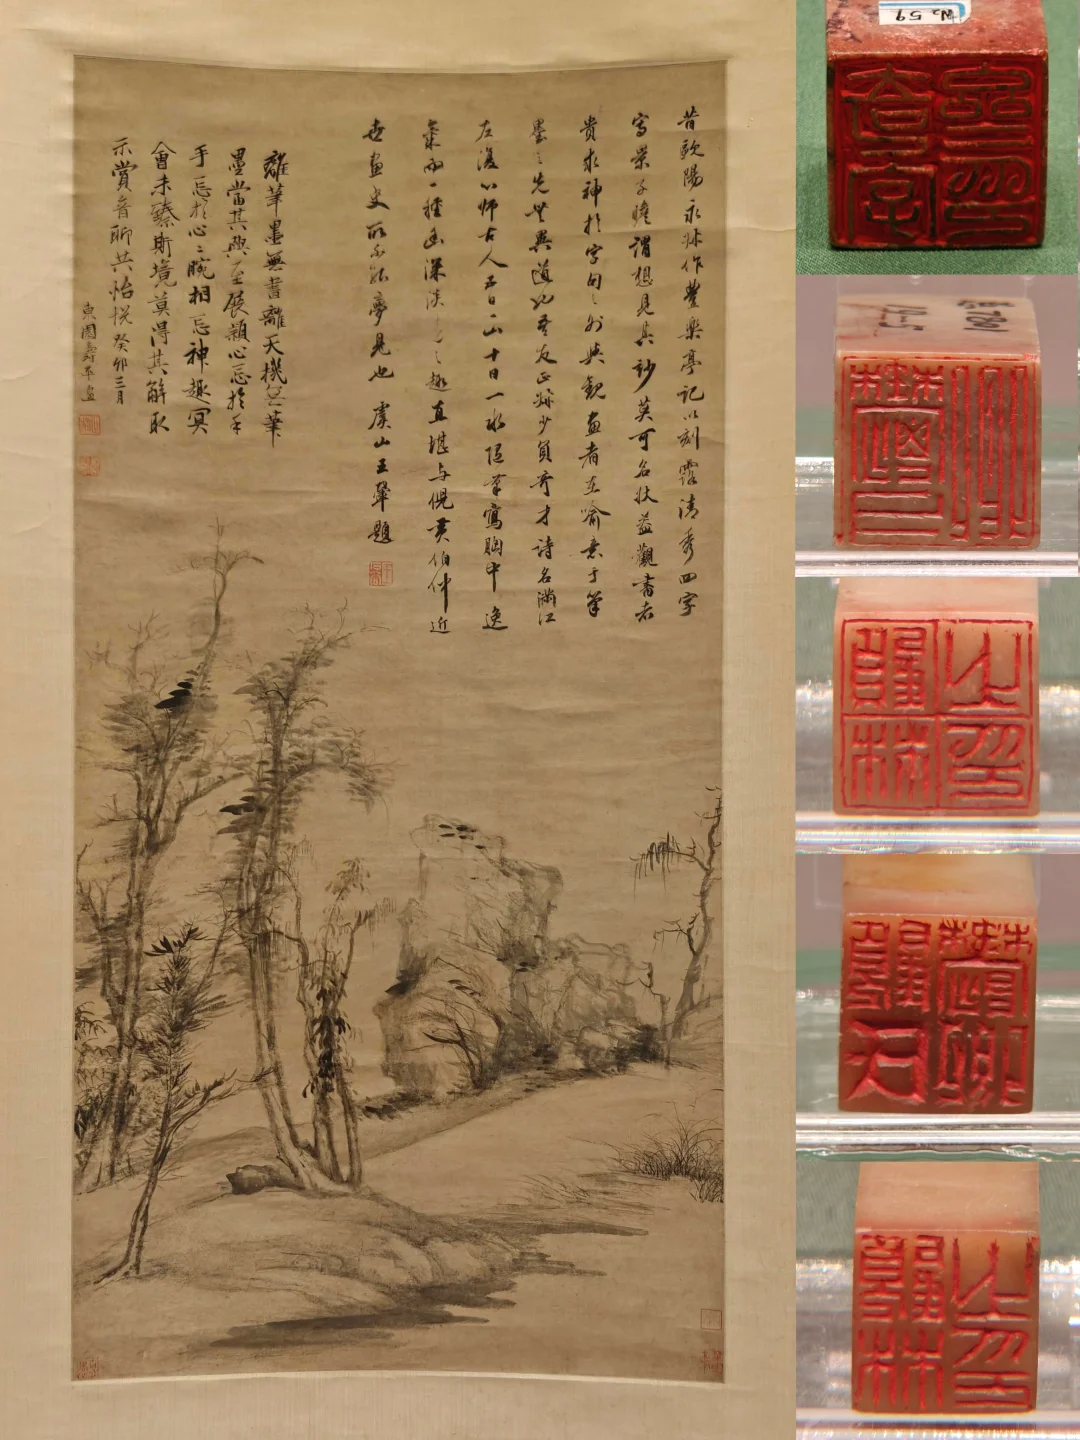 昔歐陽永叔作豐樂亭記以刻露清秀四字
寫景子瞻謂想見其妙莫可名狀蓋觀書者
貴求神於字句之外與觀畫者在喻意于筆
墨之先無異道也吾友正叔少負奇才詩名滿江
左復以師古人五日一山十日一水隨筆寫胸中逸
氣而一種幽深淡之趣直堪與倪黃伯仲近
世畫史所不能夢見也 虞山王翬題
離筆墨無書離天機無筆
墨當其興至展穎心忘於手
手忘於心心腕相忘神趣冥
會未臻斯境莫得其解取
示賞音聊共怡悅癸卯三月
東園壽平畫
No 59